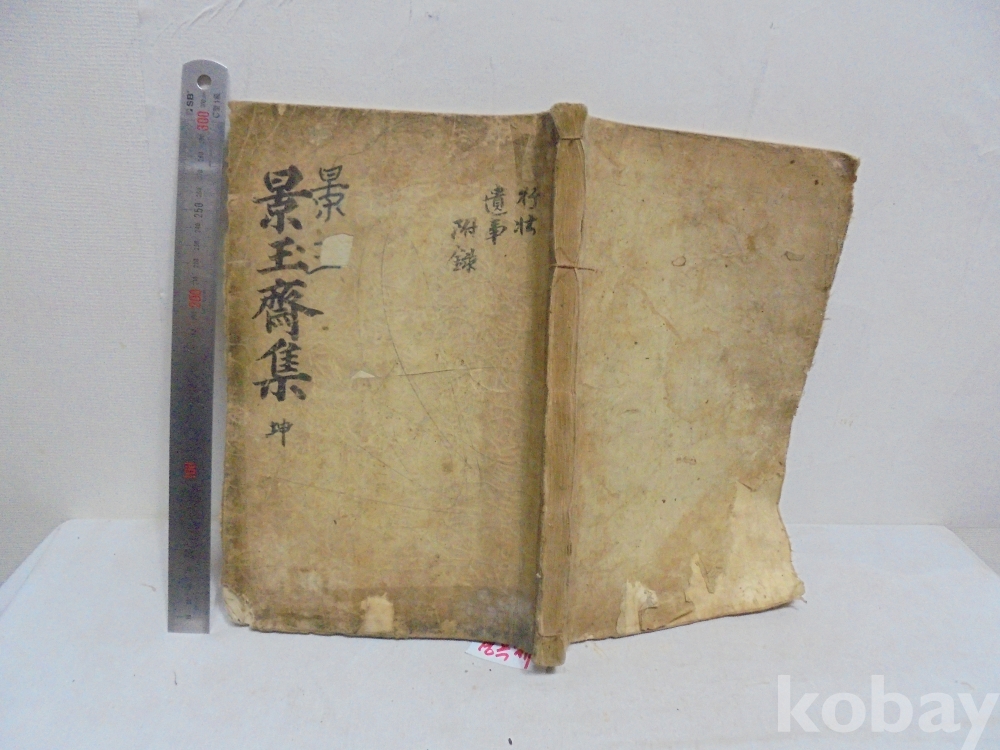 景玉齋集 坤
景
行狀
遺事
附錄
300
250
200
100
kobay